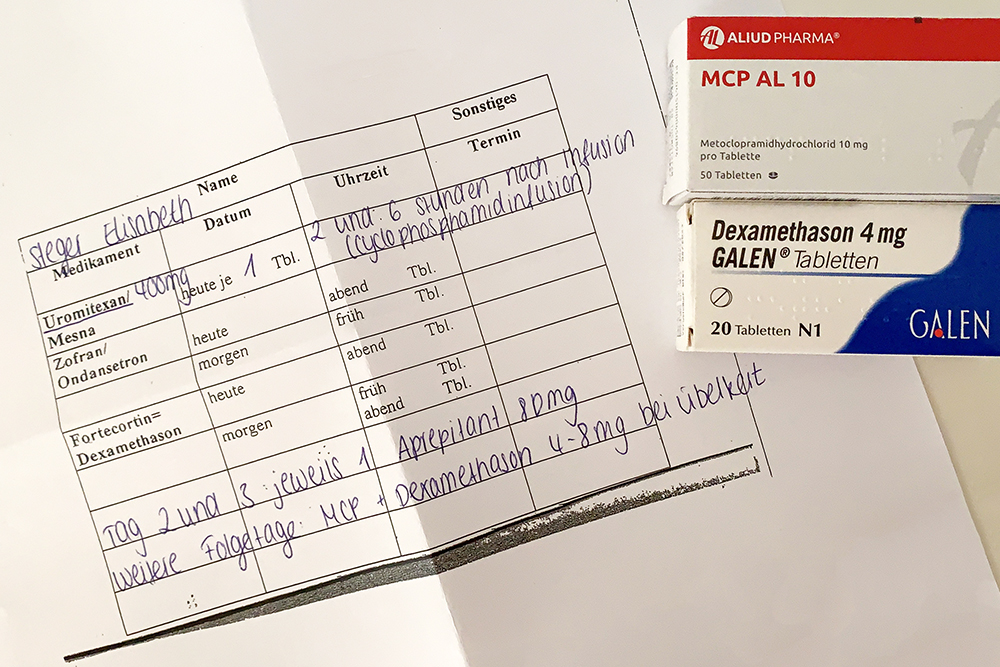 Name
Sonstiges
Steger Elisabeth
Datum
Uhrzeit
Termin
Medikament
Uromitexan/ 400mg
Mesna
heute je 1 Tbl.
2 und 6 Stunden nach Infusion
(Cyclophosphamidinfusion)
Zofran/
Ondansetron
heute
abend
Tbl.
morgen
früh
Tbl.
abend
Tbl.
Fortecortin=
Dexamethason
heute
morgen
früh
Tbl.
abend
Tbl.
Tag 2 und 3: jeweils 1 Aprepitant 80mg
weitere Folgetage: MCP + Dexamethason 4-8mg bei Übelkeit
AL ALIUD PHARMA®
MCP AL 10
Metoclopramidhydrochlorid 10 mg
pro Tablette
50 Tabletten
Dexamethason 4 mg
GALEN® Tabletten
20 Tabletten N1
GALEN